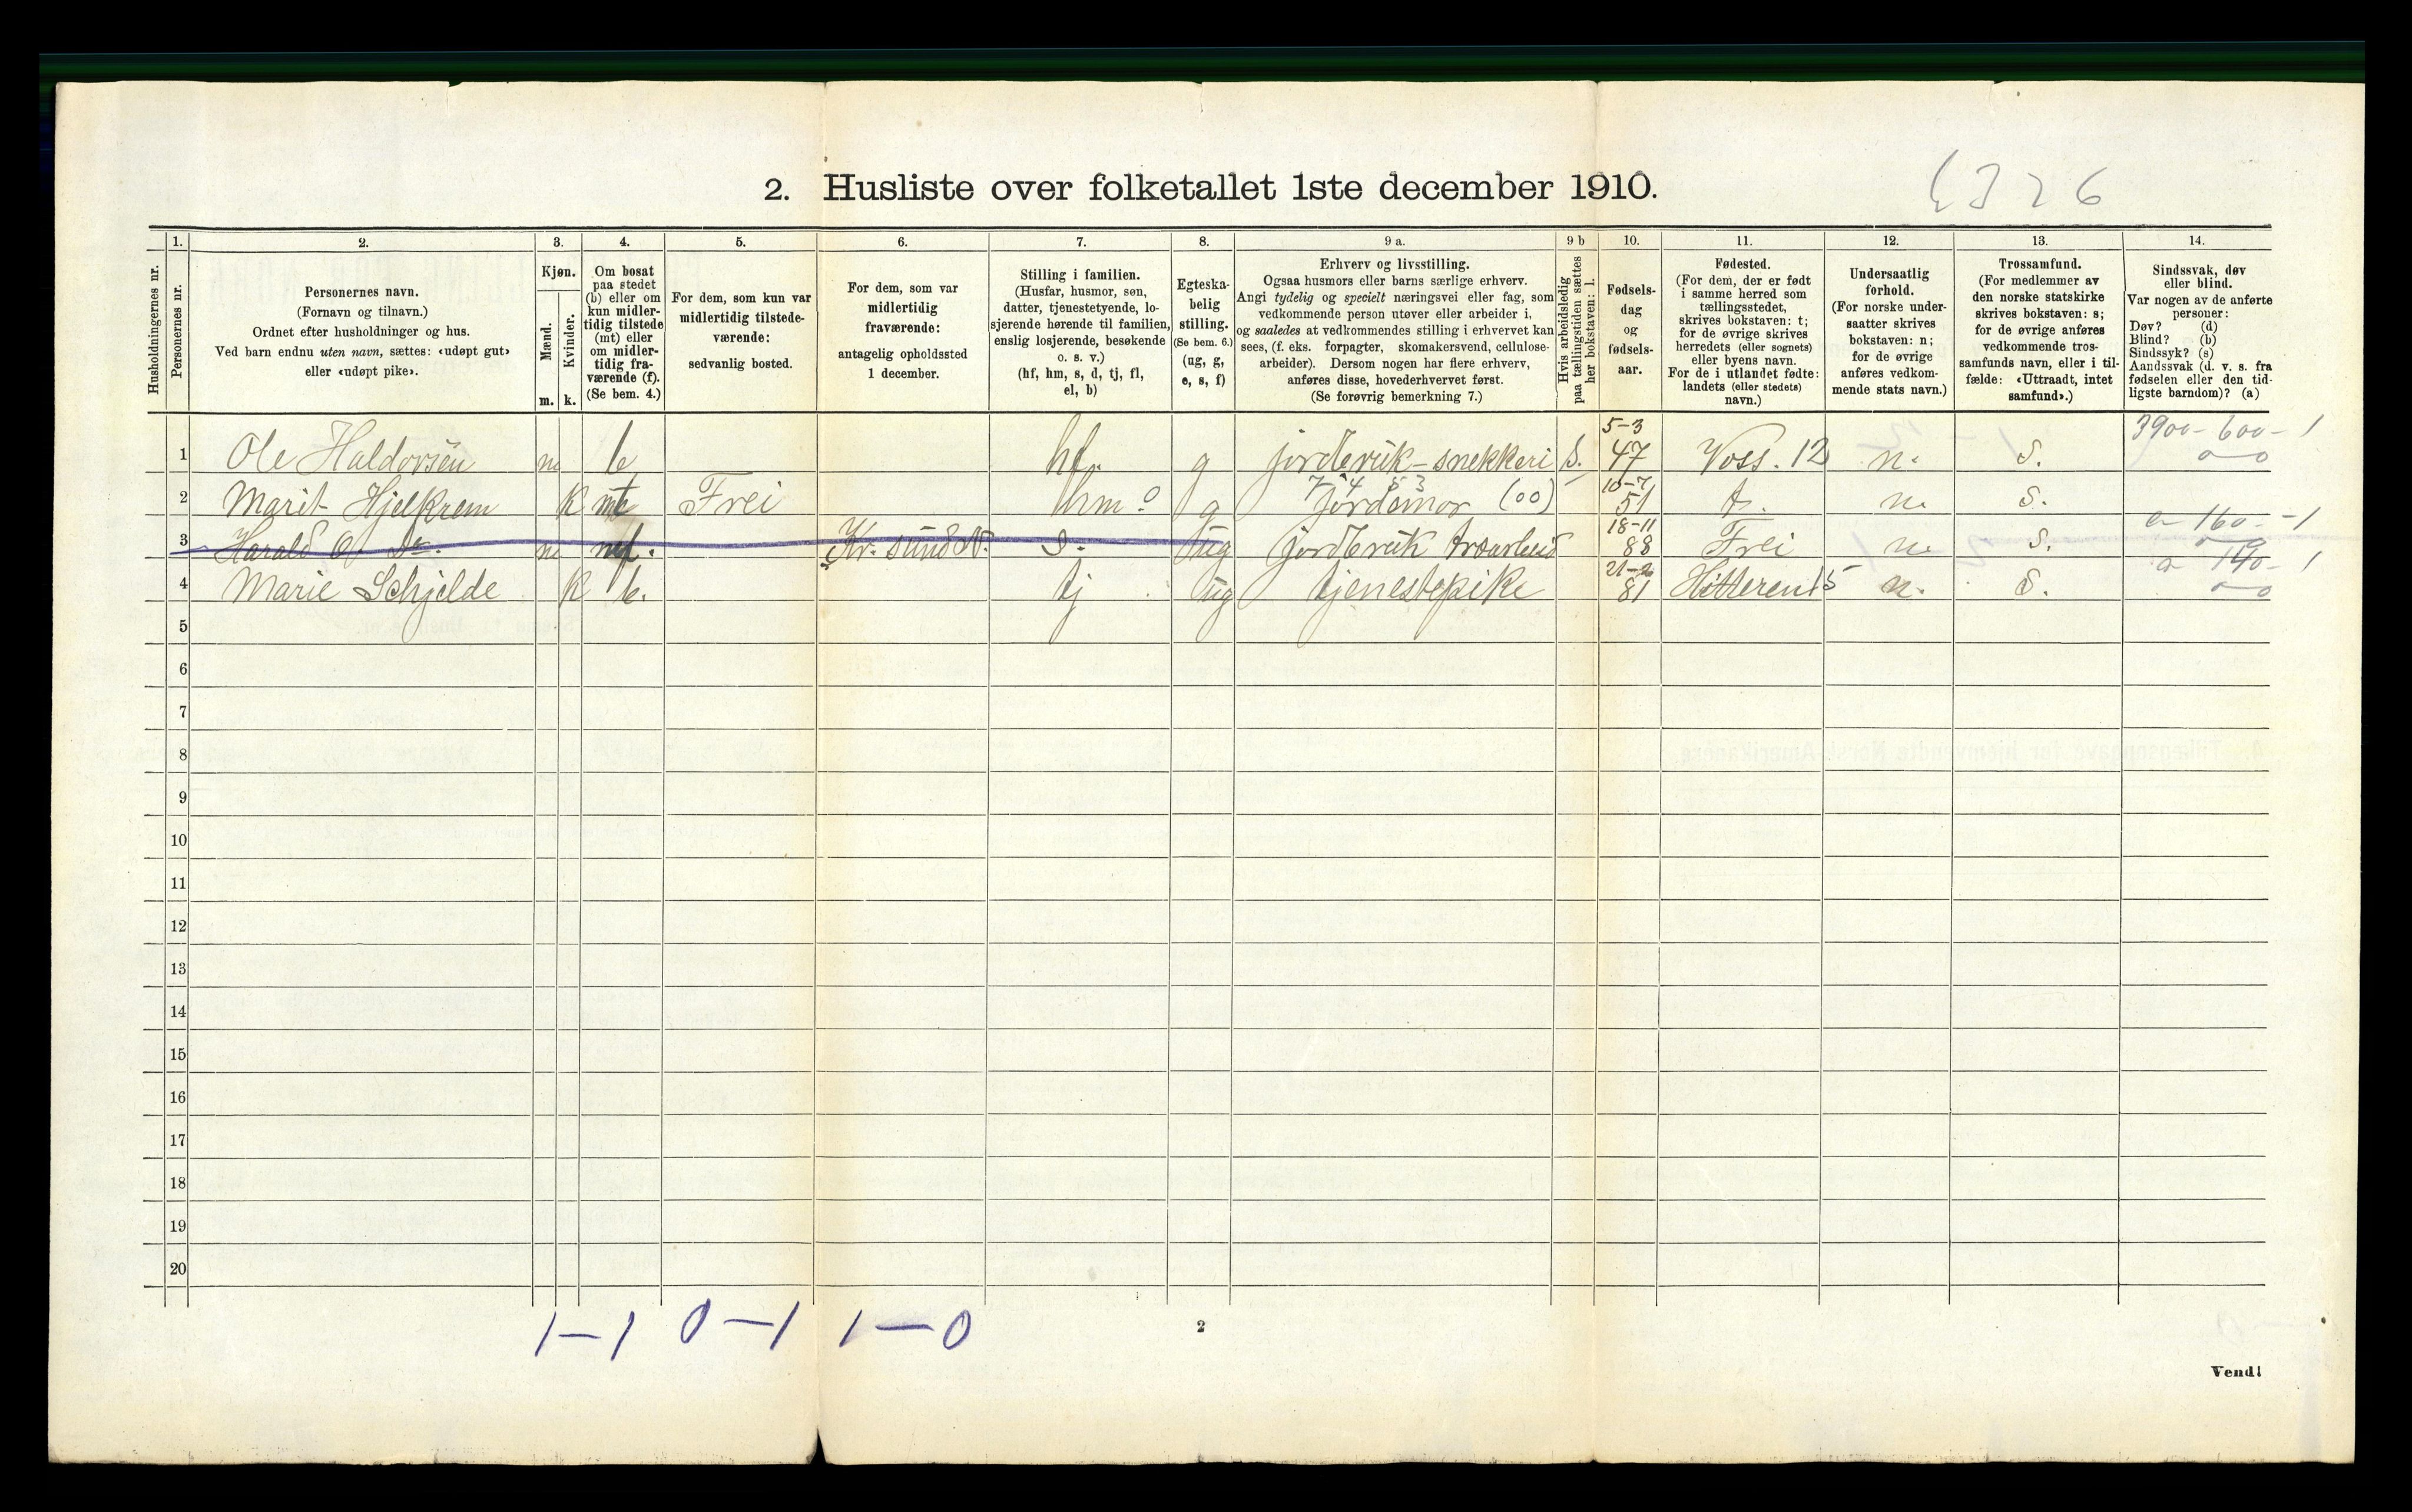 2. Husliste over folketallet 1ste december 1910.
Husholdningernes nr.
1.
Personernes nr.
2.
Personernes navn.
(Fornavn og tilnavn.)
Ordnet efter husholdninger og hus.
Ved barn endnu uten navn, sættes: «udøpt gut»
eller «udøpt pike».
3.
Kjøn.
Mænd.
Kvinder.
m. k.
4.
Om bosat
paa stedet
(b) eller om
kun midler-
tidig tilstede
(mt) eller
om midler-
tidig fra-
værende (f).
(Se bem. 4.)
5.
For dem, som kun var
midlertidig tilstede-
værende:
sedvanlig bosted.
6.
For dem, som var
midlertidig
fraværende:
antagelig opholdssted
1 december.
7.
Stilling i familien.
(Husfar, husmor, søn,
datter, tjenestetyende, lo-
sjerende hørende til familien,
enslig losjerende, besøkende
o. s. v.)
(hf, hm, s, d, tj, fl,
el, b)
8.
Egteska-
belig
stilling.
(Se bem. 6.)
(ug, g,
e, s, f)
9 a.
Erhverv og livsstilling.
Ogsaa husmors eller barns særlige erhverv.
Angi tydelig og specielt næringsvei eller fag, som
vedkommende person utøver eller arbeider i,
og saaledes at vedkommendes stilling i erhvervet kan
sees, (f. eks. forpagter, skomakersvend, cellulose-
arbeider). Dersom nogen har flere erhverv,
anføres disse, hovederhvervet først.
(Se forøvrig bemerkning 7.)
9 b
Hvis arbeidsledig
paa tællingstiden sættes
her bokstaven: l.
10.
Fødsels-
dag
og
fødsels-
aar.
11.
Fødested.
(For dem, der er født
i samme herred som
tællingsstedet,
skrives bokstaven: t;
for de øvrige skrives
herredets (eller sognets)
eller byens navn.
For de i utlandet fødte:
landets (eller stedets)
navn.)
12.
Undersaatlig
forhold.
(For norske under-
saatter skrives
bokstaven: n;
for de øvrige
anføres vedkom-
mende stats navn.)
13.
Trossamfund.
(For medlemmer av
den norske statskirke
skrives bokstaven: s;
for de øvrige anføres
vedkommende tros-
samfunds navn, eller i til-
fælde: «Uttraadt, intet
samfund».)
14.
Sindssvak, døv
eller blind.
Var nogen av de anførte
personer:
Døv? (d)
Blind? (b)
Sindssyk? (s)
Aandssvak (d. v. s. fra
fødselen eller den tid-
ligste barndom)? (a)
1 Ole Haldorsen m b hf. g jordbruk-snekkeri S. 5-3 47 Voss. 12 n. s. 3900-600-1
2 Marit Hjelkrem k mt Frei hm g jordemor (00) 10-7 51 t. n. s.
3 Harald O. Do. m mf. Kr.sund N. s. ug jordbruk træarbeid 18-11 88 Frei n. s. 160-1
4 Marie Schjelde k b. tj ug tjenestepike 81 Hitteren 15 n. s. 140-1
5
6
7
8
9
10
11
12
13
14
15
16
17
18
19
20
1-1 0-1 1-0
2
Vend!